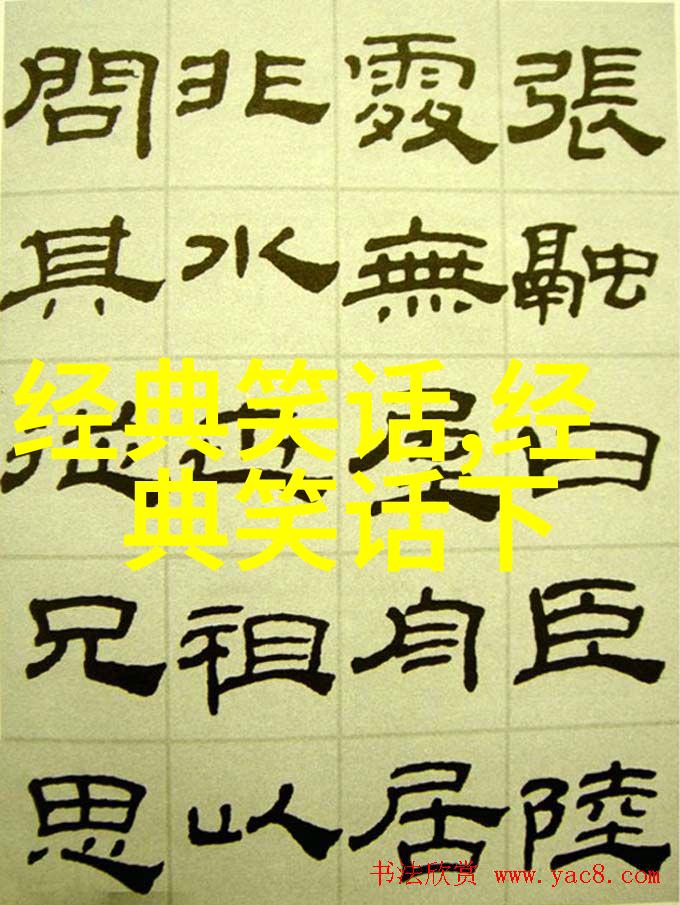 張融曰臣陸
處無屋舟居
非水祖以
問其從兄思
经典笑话,经
典笑话下
书法欣赏 www.yac8.com